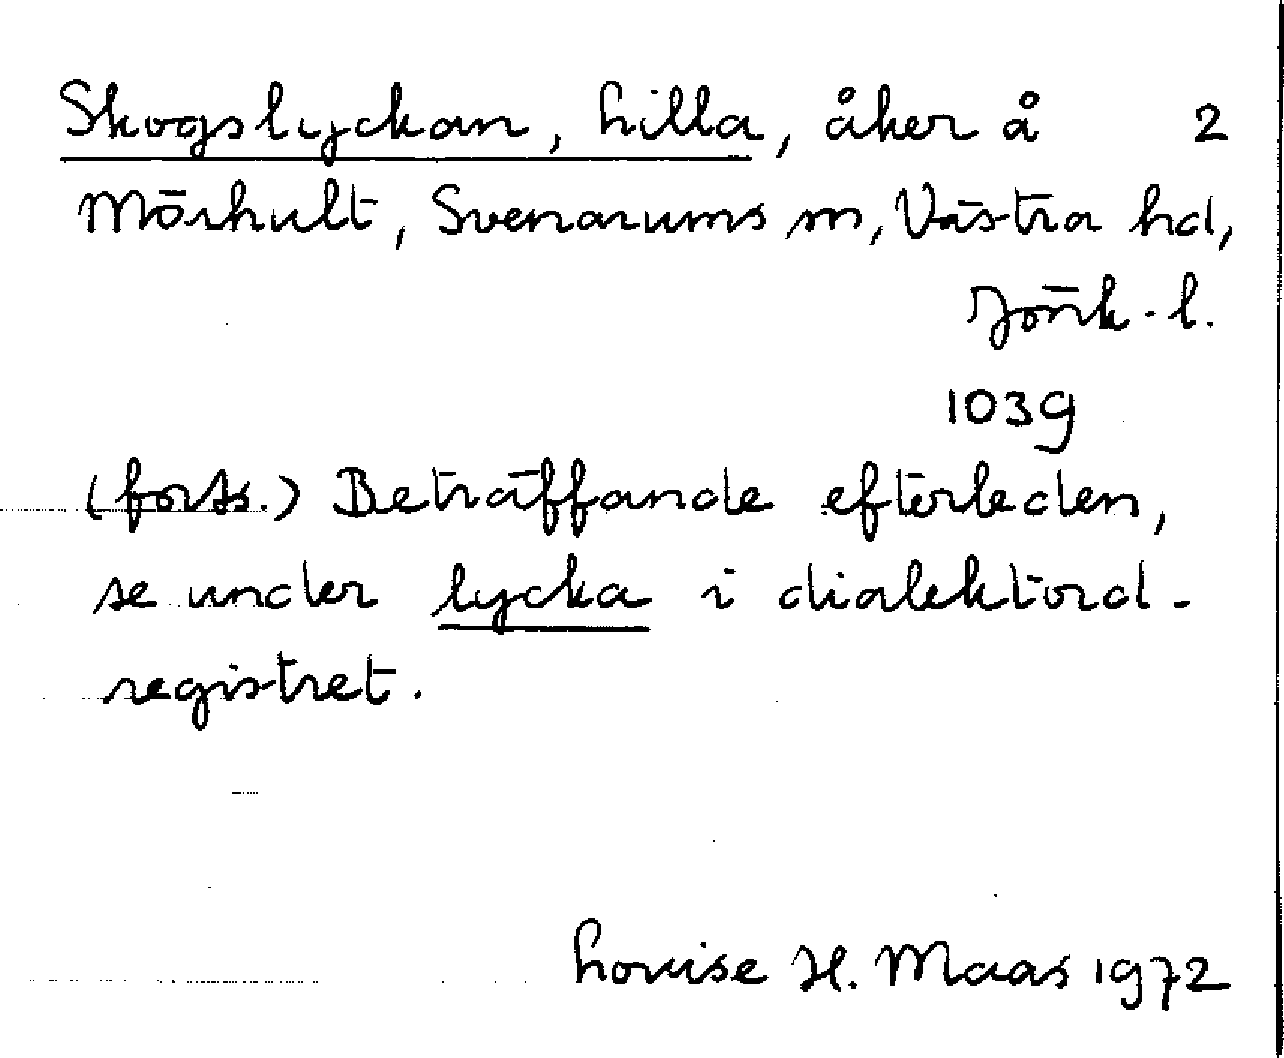 Skogslyckan, Lilla, åker å 2
Mörhult, Svenarums sn, Västra hd,
Jönk. l.
1039
(forts.) Beträffande efterleden,
se under lycka i dialektord-
registret.
Louise H. Maas 1972